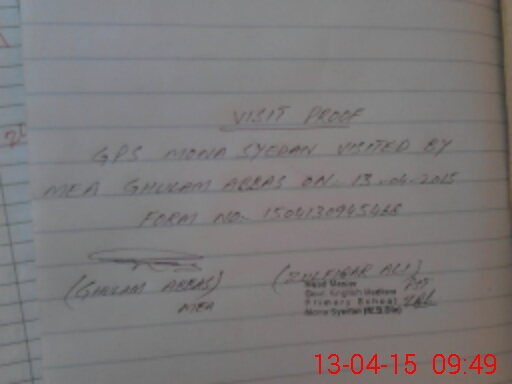 VISIT PROOF
GPS MONA SYEDAN VISITED BY
MEA GHULAM ABBAS ON 13-04-2015
FORM NO:- 150413094546
(GHULAM ABBAS) (ZULFIQAR ALI)
MEA
Head Master
Govt. English Medium
Primary School
Mona Syedan
13-04-15 09:49